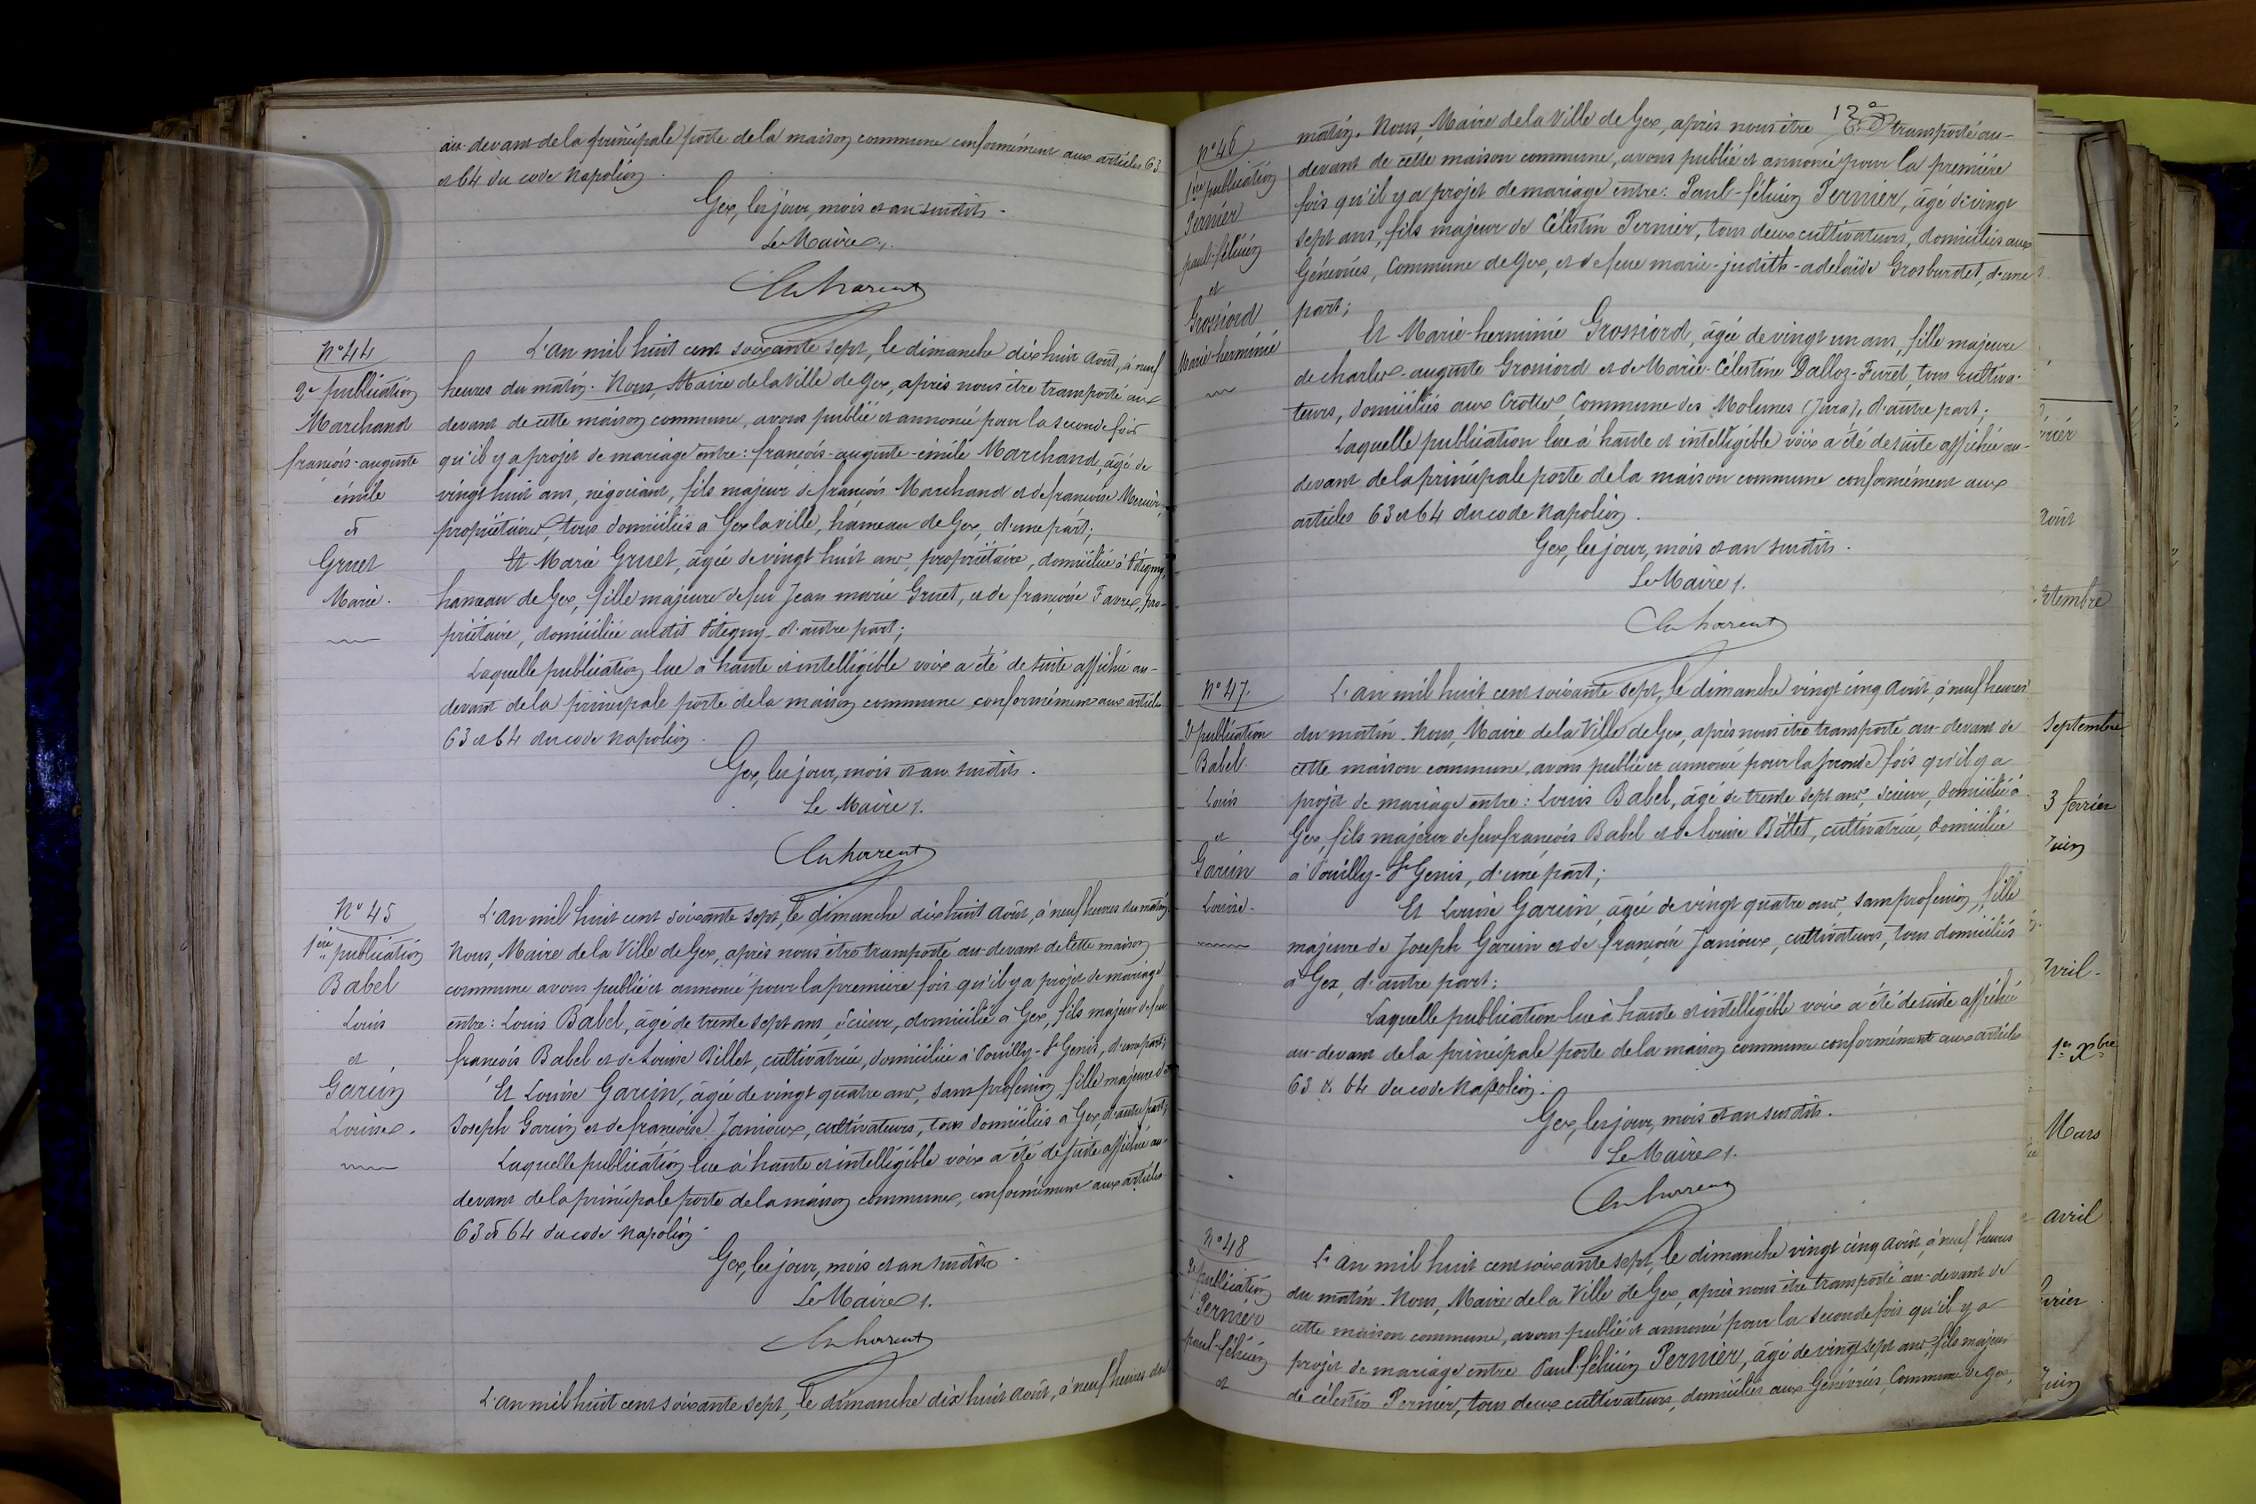 au-devant de la principale porte de la maison commune conformément aux articles 63
et 64 du code Napoléon.
Gex, les jour, mois et an susdits.
Le Maire.
N° 44
2e publication
Marchand
françois-auguste
émile
et
Gruet
Marie.
L'an mil huit cent soixante sept, le dimanche dix huit Août, à neuf
heures du matin. Nous, Maire de la Ville de Gex, après nous être transporté au-
devant de cette maison commune, avons publié et annoncé pour la seconde fois
qu'il y a projet de mariage entre : françois-auguste-émile Marchand, âgé de
vingt huit ans, négociant, fils majeur de françois Marchand et de françoise Mercier,
propriétaires, tous domiciliés à Gex la ville, hameau de Gex, d'une part;
Et Marie Gruet, âgée de vingt huit ans, propriétaire, domiciliée à Pitegny,
hameau de Gex, fille majeure de feu Jean marie Gruet, et de françoise Favre, pro-
priétaire, domiciliée audit Pitegny, d'autre part;
Laquelle publication lue à haute et intelligible voix a été de suite affichée au-
devant de la principale porte de la maison commune conformément aux articles
63 et 64 du code Napoléon.
Gex, les jour, mois et an susdits.
Le Maire.
N° 45
1ère publication
Babel
Louis
et
Garcin
Louise.
L'an mil huit cent soixante sept, le dimanche dix huit Août, à neuf heures du matin.
Nous, Maire de la Ville de Gex, après nous être transporté au-devant de cette maison
commune avons publié et annoncé pour la première fois qu'il y a projet de mariage
entre : Louis Babel, âgé de trente sept ans, Scieur, domicilié à Gex, fils majeur de feu
françois Babel et de Louise Billet, cultivatrice, domiciliée à Pouilly-St Genis, d'une part;
Et Louise Garcin, âgée de vingt quatre ans, sans profession, fille majeure de
Joseph Garcin et de françoise Janioux, cultivateurs, tous domiciliés à Gex, d'autre part;
Laquelle publication lue à haute et intelligible voix a été de suite affichée au-
devant de la principale porte de la maison commune, conformément aux articles
63 et 64 du code Napoléon.
Gex, les jour, mois et an susdits.
Le Maire.
L'an mil huit cent soixante sept, le dimanche dix huit Août, à neuf heures du
N° 46
1ère publication
Pernier
paul-félicien
et
Grossiord
Marie-herminie
matin. Nous, Maire de la Ville de Gex, après nous être transporté au-
devant de cette maison commune, avons publié et annoncé pour la première
fois qu'il y a projet de mariage entre : Paul-félicien Pernier, âgé de vingt
sept ans, fils majeur de Célestin Pernier, tous deux cultivateurs, domiciliés aux
Génévries, Commune de Gex, et de feue marie-judith-adelaïde Grosburdet, d'une
part;
Et Marie-herminie Grossiord, âgée de vingt un ans, fille majeure
de charles-auguste Grossiord et de Marie-Célestine Dalloz-Furet, tous cultiva-
teurs, domiciliés aux Crottes, Commune des Molunes (Jura), d'autre part;
Laquelle publication lue à haute et intelligible voix a été de suite affichée au-
devant de la principale porte de la maison commune conformément aux
articles 63 et 64 du code Napoléon.
Gex, les jour, mois et an susdits.
Le Maire.
N° 47.
2e publication
Babel.
Louis
et
Garcin
Louise.
L'an mil huit cent soixante sept, le dimanche vingt cinq Août, à neuf heures
du matin. Nous, Maire de la Ville de Gex, après nous être transporté au-devant de
cette maison commune, avons publié et annoncé pour la seconde fois qu'il y a
projet de mariage entre : Louis Babel, âgé de trente sept ans, Scieur, domicilié à
Gex, fils majeur de feu françois Babel et de Louise Billet, cultivatrice, domiciliée
à Pouilly-St Genis, d'une part;
Et Louise Garcin, âgée de vingt quatre ans, sans profession, fille
majeure de Joseph Garcin et de françoise Janioux, cultivateurs, tous domiciliés
à Gex, d'autre part;
Laquelle publication lue à haute et intelligible voix a été de suite affichée
au-devant de la principale porte de la maison commune conformément aux articles
63 et 64 du code Napoléon.
Gex, les jour, mois et an susdits.
Le Maire.
N° 48
2e publication
Pernier
paul-félicien
et
L'an mil huit cent soixante sept, le dimanche vingt cinq Août, à neuf heures
du matin. Nous, Maire de la Ville de Gex, après nous être transporté au-devant de
cette maison commune, avons publié et annoncé pour la seconde fois qu'il y a
projet de mariage entre Paul-félicien Pernier, âgé de vingt sept ans, fils majeur
de célestin Pernier, tous deux cultivateurs, domiciliés aux Génévries, Commune de Gex,
Août
Septembre
3 février
Juin
Avril
1er Xbre
Mars
avril
Juin